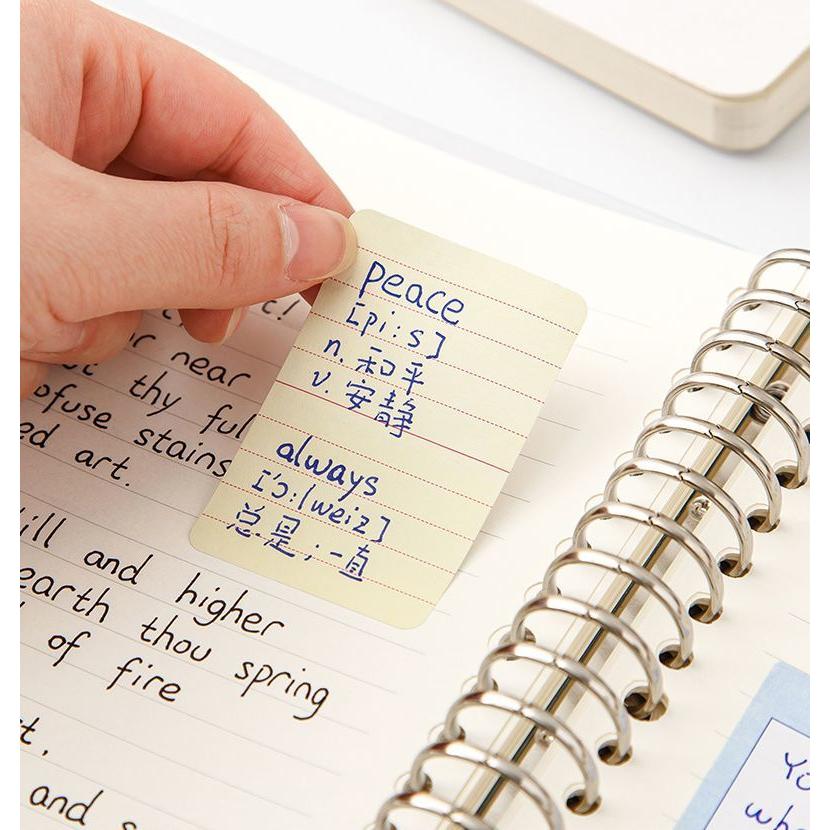 peace
[pi:s]
n. 和平
v. 安静
always
[ˈɔ:lweiz]
总是;一直
near
thy ful
ofuse stains
ed art.
ill and higher
earth thou spring
of fire
and